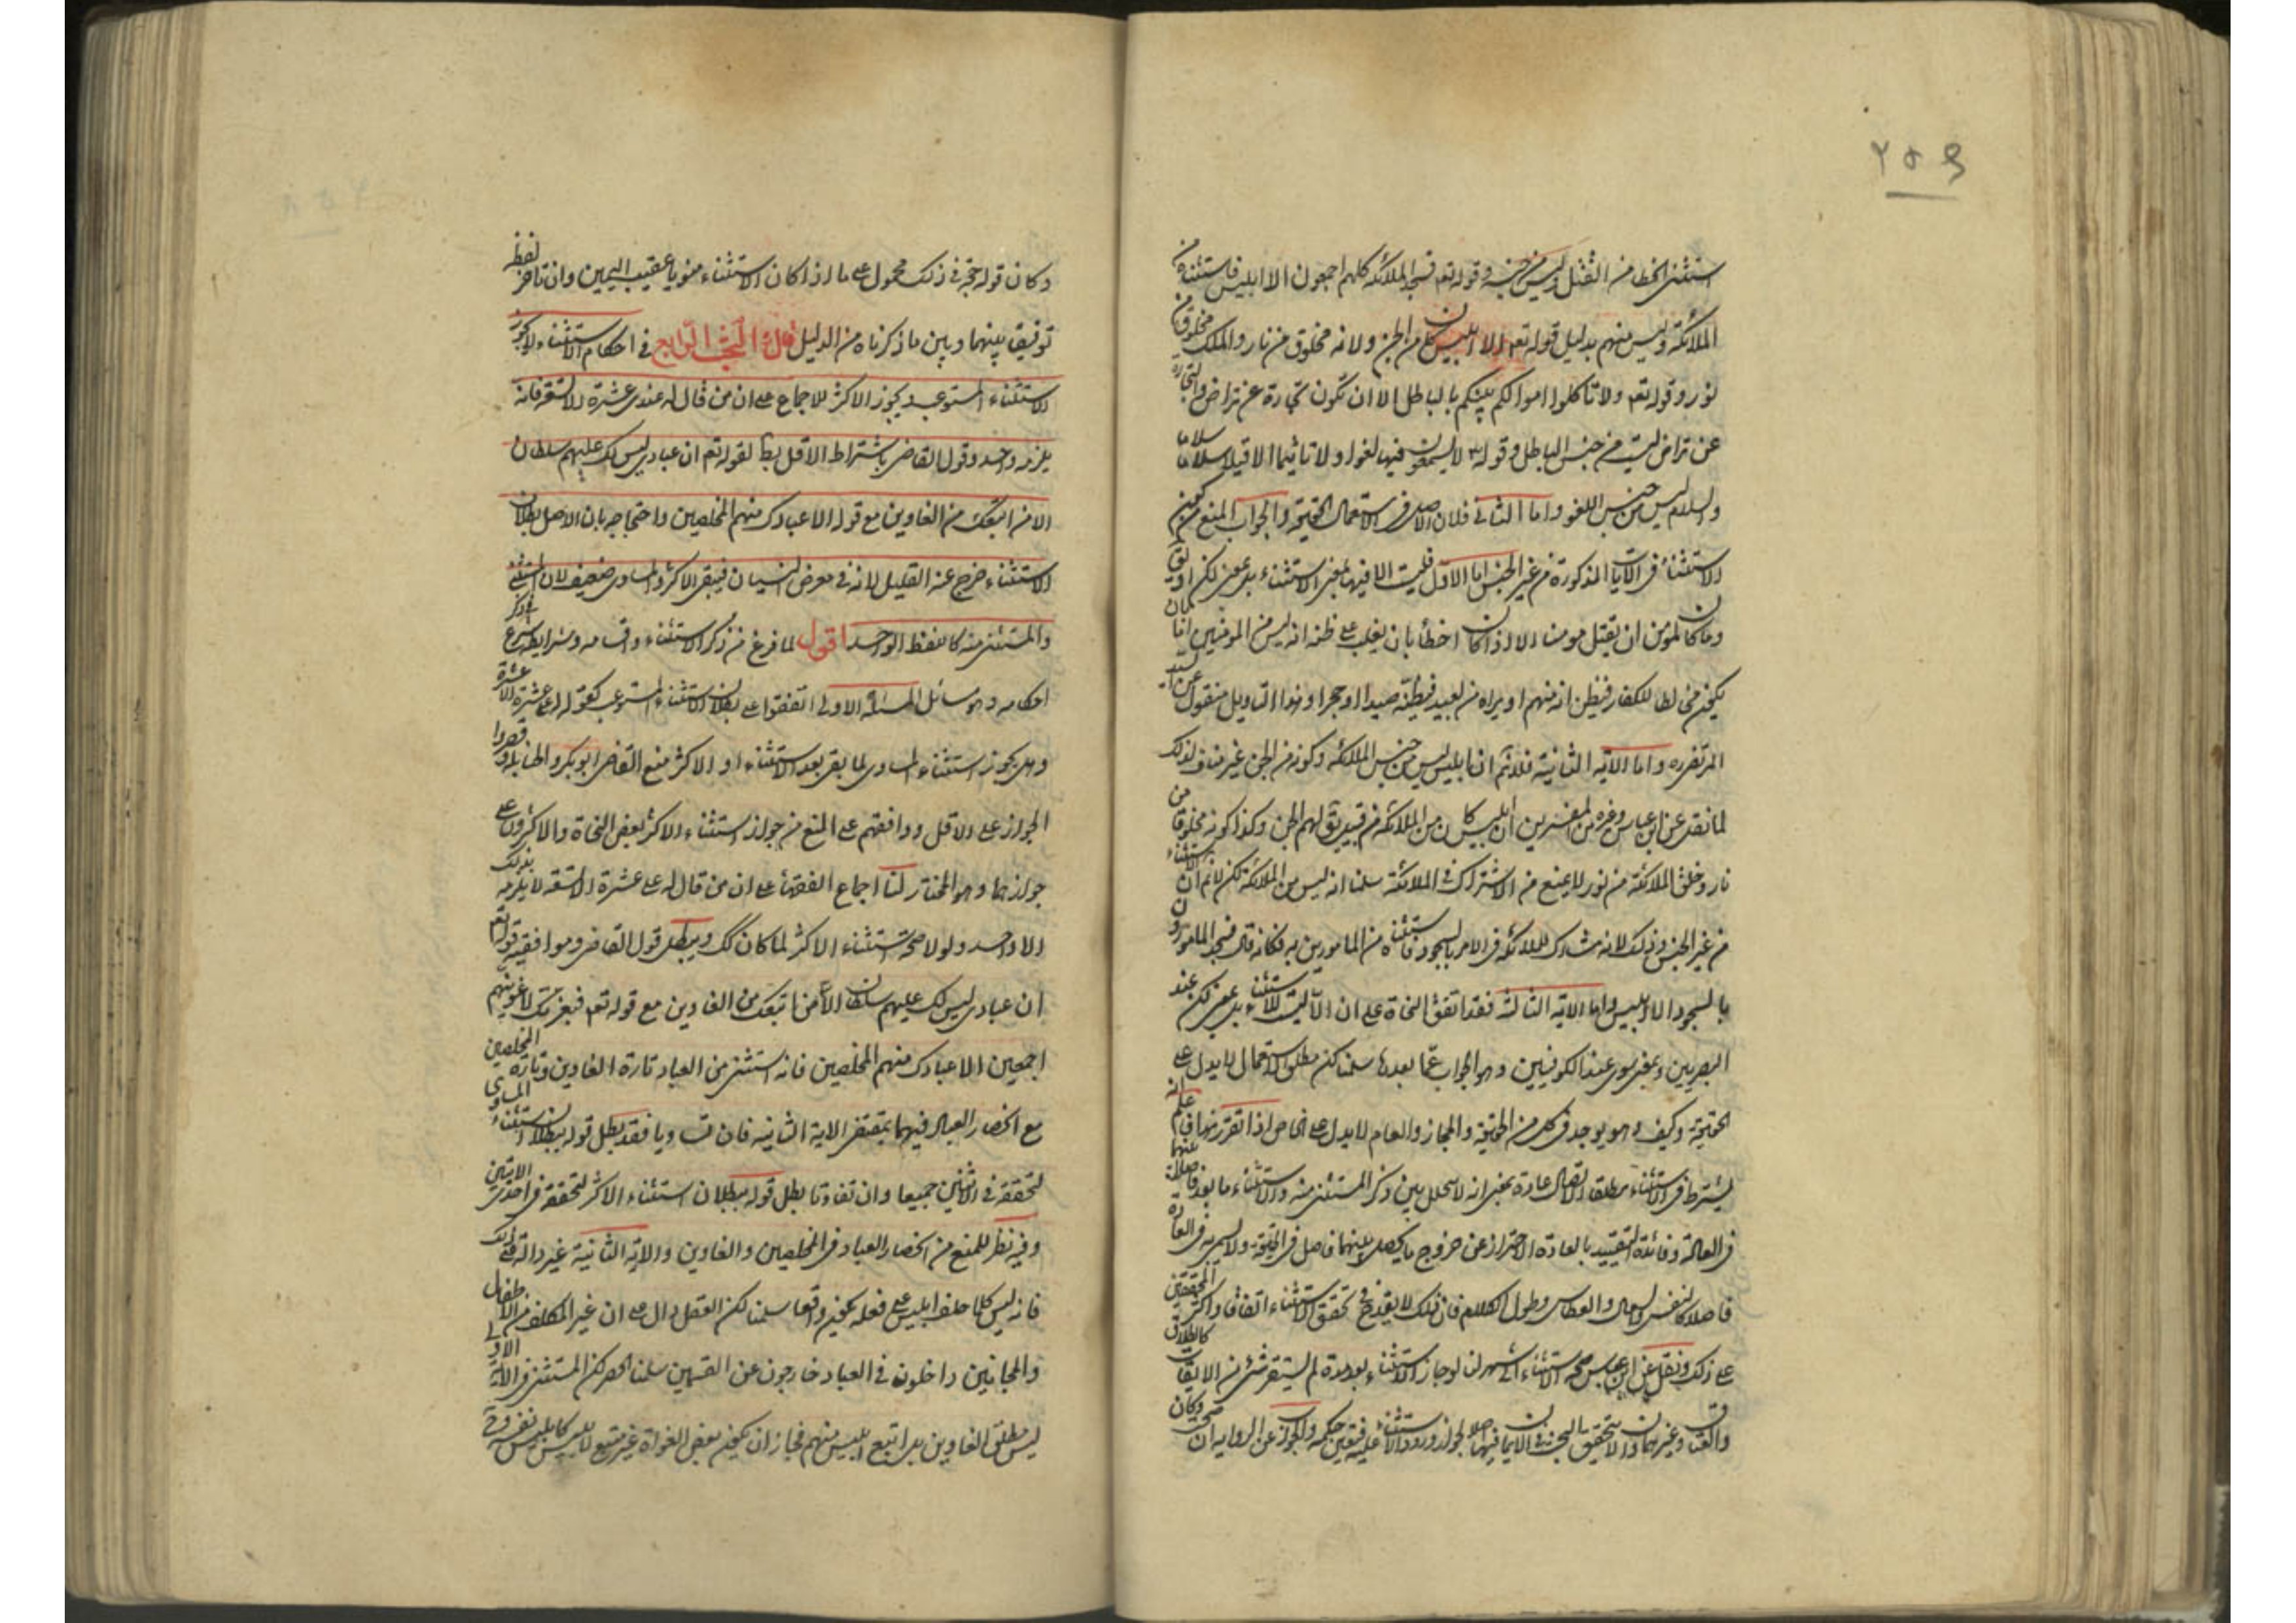 ٢٥٩
استثنى الخطا من القتل وليس من جنسه وقوله تعم فسجد الملائكة كلهم اجمعون الا ابليس فاستثناه من
الملائكة وليس منهم بدليل قوله تعم الا ابليس كان من الجن ولانه مخلوق من نار والملك مخلوق من
نور وقوله تعم ولا تاكلوا اموالكم بينكم بالباطل الا ان تكون تجارة عن تراض والتجارة
عن تراض ليست من جنس الباطل وقوله لا يسمعون فيها لغوا ولا تاثيما الا قيلا سلاما سلاما
والسلام ليس من جنس اللغو واما الثانى فلان الاصل فى الاستعمال الحقيقة والجواب المنع من كون
الاستثناء فى الايات المذكورة من غير الجنس اما الاول فليست الا فيها بمعنى الاستثناء بل بمعنى لكن او يق
وما كان لمؤمن ان يقتل مومنا الا اذا كان اخطأ بان يغلب على ظنه انه ليس من المومنين اما بان
يكون مخالطا للكفار فيظن انه منهم او يراه من بعيد فيظنه صيدا او حجرا وهذا التاويل منقول عن السيد
المرتضى ره واما الاية الثانية فلا نم ان ابليس ليس من جنس الملائكة وكونه من الجن غير مناف لذلك
لما نقل عن ابن عباس وغيره من المفسرين ان ابليس كان من الملائكة من قبيل يق لهم الجن وكذا كونه مخلوقا من
نار وخلق الملائكة من نور لا يمنع من الاشتراك فى الملائكة سلمنا انه ليس من الملائكة لكن لا نم ان الاستثناء
من غير الجنس وذلك لانه مشارك للملائكة فى الامر بالسجود فاستثناه من المامورين به فكانه قال فسجد المامورون
بالسجود الا ابليس واما الاية الثالثة فقد اتفق النحاة على ان الا ليست للاستثناء بل بمعنى لكن عند
البصريين وبمعنى سوى عند الكوفيين وهو الجواب عما بعدها سلمنا لكن مطلق الاستعمال لا يدل على
الحقيقة وكيف وهو يوجد فى كل من الحقيقة والمجاز والعام لا يدل على الخاص اذا تقرر هذا فاعلم انه
يشترط فى الاستثناء مطلقا الاتصال عادة بمعنى انه لا يتخلل بين ذكر المستثنى منه والاستثناء ما يعد فاصلا
فى العادة وفائدة التقييد بالعادة الاحتراز عن خروج ما يحصل بينهما فاصل فى الحقيقة ولا يسمى به فى العادة
فاصلا كالنفس والسعال والعطاس وطول الكلام فان ذلك لا يقدح فى تحقق الاستثناء اتفاقا واكثر المحققين
على ذلك ونقل عن ابن عباس صحة الاستثناء الى شهر لنا لو جاز الاستثناء بعد مدة لم يستقر شىء من الايقاعات كالطلاق
والعتاق وغيرهما ولا يتحقق الحنث فى الايمان لجواز ورود الاستثناء عليه فينتفى حكمه والجواب عن الرواية ان صحت وكان
وكان قوله حجة فى ذلك محمول على ما اذا كان الاستثناء منويا عقيب اليمين وان تاخر لفظه
توفيقا بينهما وبين ما ذكرناه من الدليل قال البحث الرابع فى احكام الاستثناء لا يجوز
الاستثناء المستوعب ويجوز الاكثر للاجماع على ان من قال له عندى عشرة الا تسعة فانه
يلزمه واحد وقول القاضى باشتراط الاقل يبطل لقوله تعم ان عبادى ليس لك عليهم سلطان
الا من اتبعك من الغاوين مع قوله الا عبادك منهم المخلصين واحتجاجه بان الاصل بطلان
الاستثناء خرج عنه القليل لانه فى معرض النسيان فيبقى الاكثر والمساوى ضعيف لان المستثنى
والمستثنى منه كاللفظ الواحد اقول لما فرغ من ذكر الاستثناء واقسامه وشرايطه شرع فى ذكر
احكامه وهو مسائل المسئلة الاولى اتفقوا على بطلان الاستثناء المستوعب كقوله له على عشرة الا عشرة
وهل يجوز استثناء المساوى لما بقى بعد الاستثناء او الاكثر منع القاضى ابو بكر والحنابلة وقصروا
الجواز على الاقل ووافقهم على المنع من جواز استثناء الاكثر بعض النحاة والاكثرون على
جوازهما وهو المختار لنا اجماع الفقهاء على ان من قال له على عشرة الا تسعة لا يلزمه بذلك
الا واحد ولولا صحة استثناء الاكثر لما كان كك ويبطل قول القاضى وموافقيه قوله تعم
ان عبادى ليس لك عليهم سلطان الا من اتبعك من الغاوين مع قوله تعم فبعزتك لاغوينهم
اجمعين الا عبادك منهم المخلصين فانه استثنى من العباد تارة الغاوين وتارة المخلصين
مع انحصار العباد فيهما بمقتضى الاية الثانية فان تساويا فقد بطل قوله ببطلان استثناء المساوى
لتحققه فى الاثنين جميعا وان تفاوتا بطل قوله ببطلان استثناء الاكثر لتحققه فى احدى الايتين
وفيه نظر للمنع من انحصار العباد فى المخلصين والغاوين والاية الثانية غير دالة على ذلك
فانه ليس كلما حلف ابليس على فعله يكون واقعا سلمنا لكن العقل دال على ان غير المكلف من الاطفال
والمجانين داخلون فى العباد خارجون عن القسمين سلمنا الحصر لكن المستثنى فى الاية الاولى
ليس مطلق الغاوين بل من اتبع ابليس منهم فجاز ان يكون بعض الغواة غير متبع لابليس كابليس نفسه